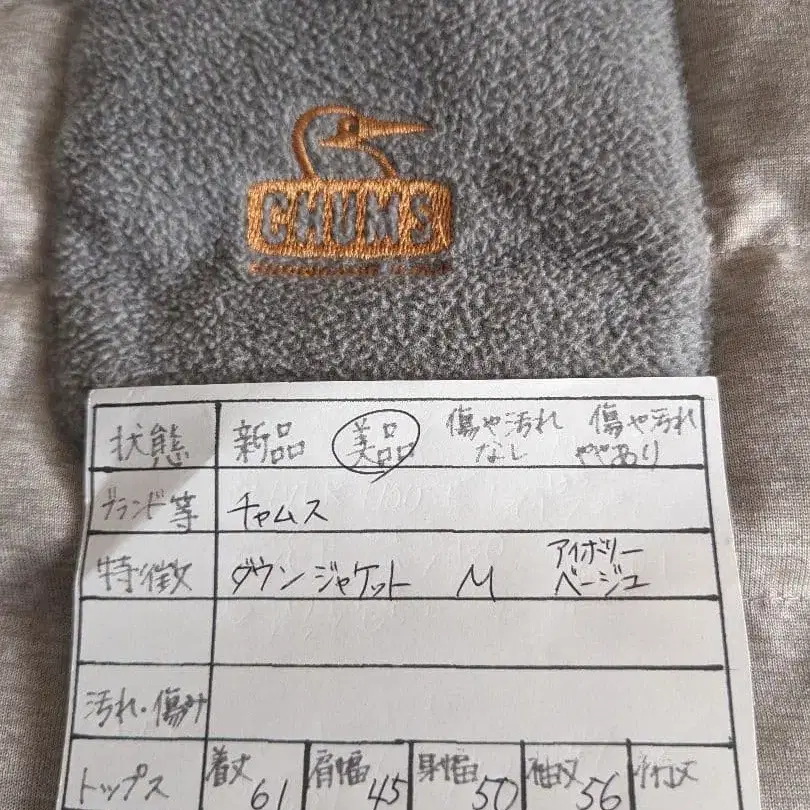 CHUMS
状態 新品 美品 傷や汚れなし 傷や汚れややあり
ブランド等 チャムス
特徴 ダウンジャケット M アイボリーベージュ
汚れ・傷み
トップス 着丈 61 肩幅 45 身幅 50 袖丈 56 裄丈